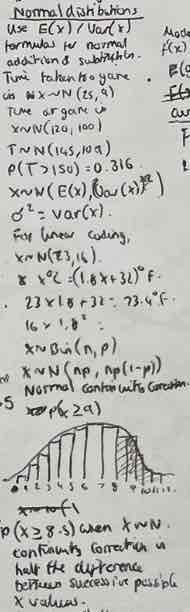 Normal distributions
Use E(x) / Var(x)
formulas for normal
addition & subtraction.
Time taken to game
is N X~N(25, 9)
Time at game is
X~N(120, 100)
T~N(145, 109)
P(T>150) = 0.316
X~N(E(x), Var(x))
σ² = Var(x).
For linear coding,
X~N(23, 16).
x°C = (1.8x+32)°F.
23 x 1.8 + 32 = 73.4°F.
16 x 1.8² =
X~Bin(n, p)
X~N(np, np(1-p))
Normal Continuity Correction
P(X≥9)
1 2 3 4 5 6 7 8 9 10 11 12
P(X≥8.5) when X~N.
Continuity correction is
half the difference
between successive possible
X values.
Mode
f(x)
E(